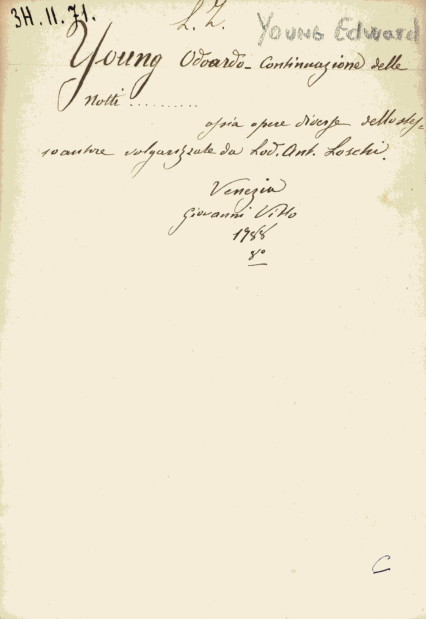 3H.11.71.
L. Z.
YOUNG Edward
Young Odoardo - Continuazione delle
Notti ..........
ossia opere diverse dello stes-
so autore volgarizzate da Lod. Ant. Loschi.
Venezia
Giovanni Vitto
1788
8º
C